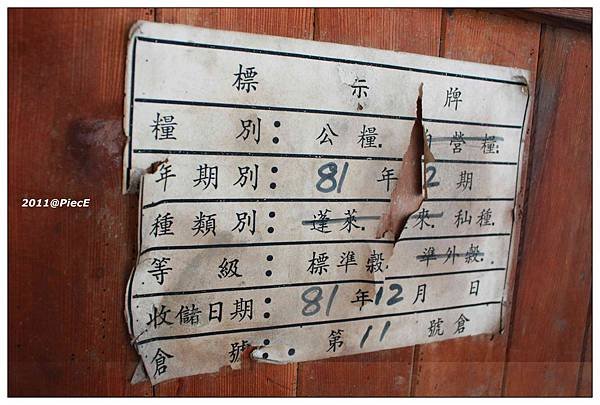 標示牌
糧別：公糧. 自營糧.
年期別：81年2期
種類別：蓬萊. 來. 秈種.
等級：標準穀. 準外穀.
收儲日期：81年12月 日
倉號：第11號倉
2011@PiecE